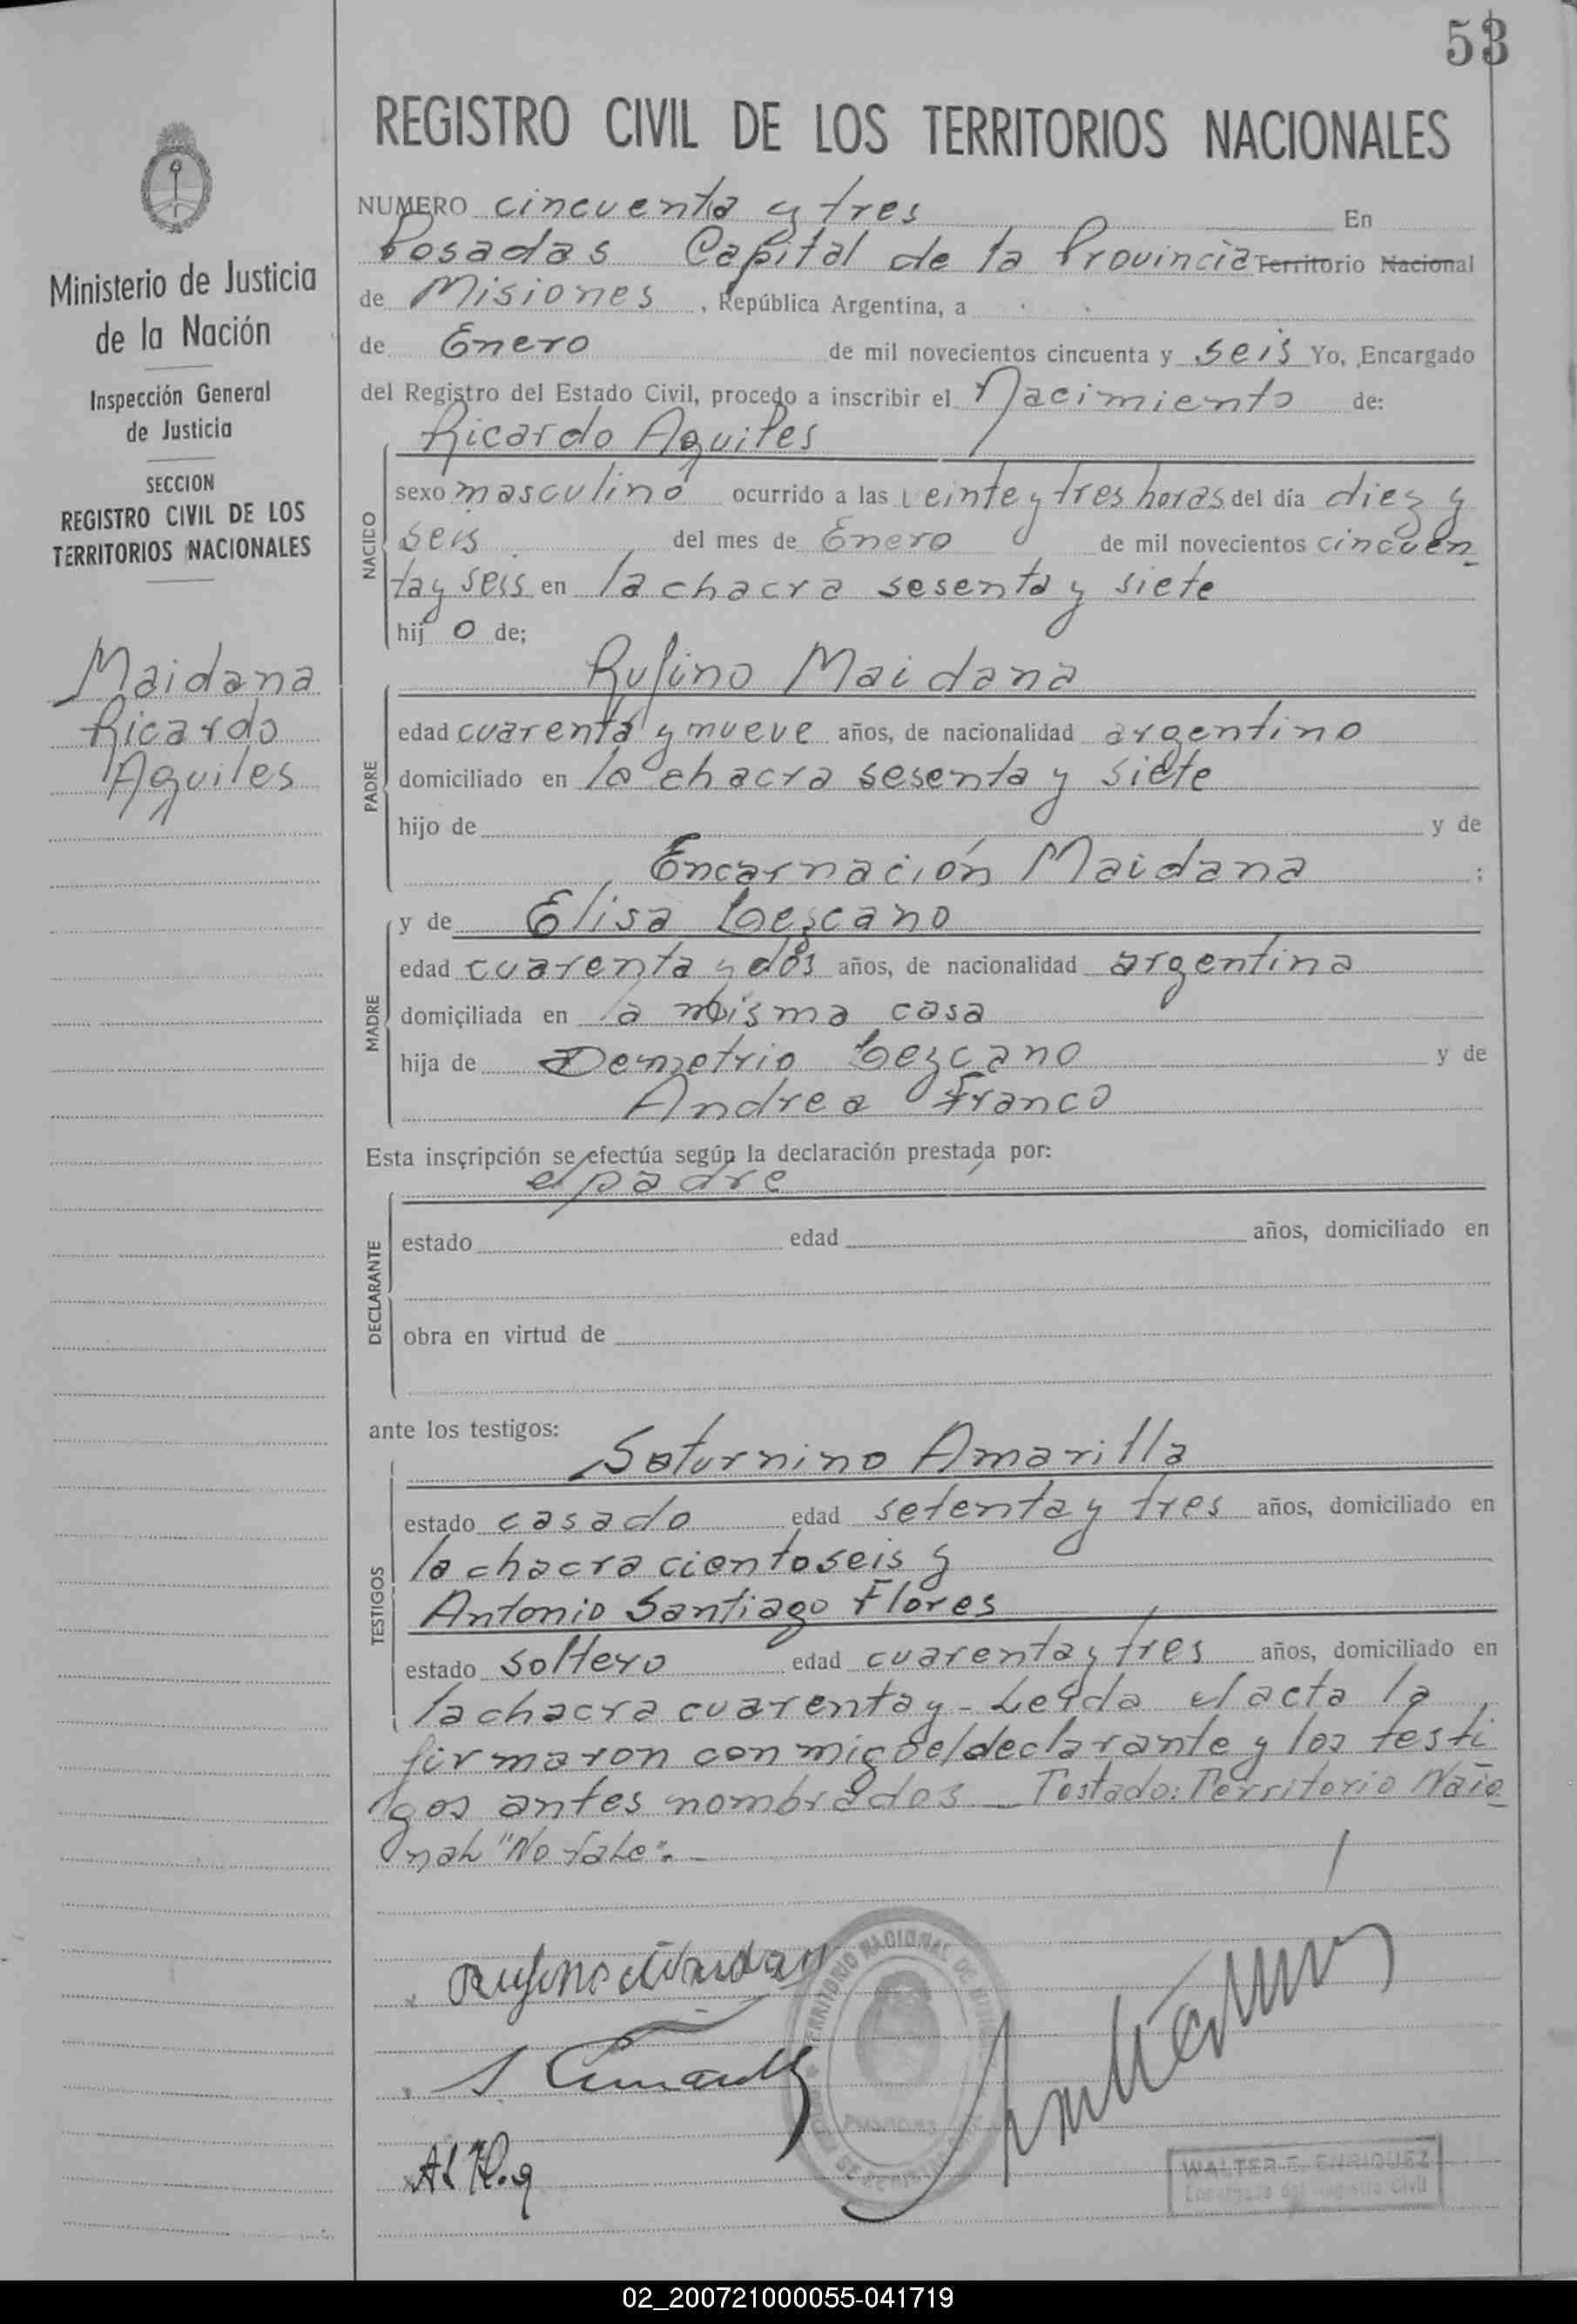 53
REGISTRO CIVIL DE LOS TERRITORIOS NACIONALES
Ministerio de Justicia
de la Nación
Inspección General
de Justicia
SECCION
REGISTRO CIVIL DE LOS
TERRITORIOS NACIONALES
Maidana
Ricardo
Aquiles
NUMERO cincuenta y tres En
Posadas Capital de la Provincia Territorio Nacional
de Misiones, República Argentina, a
de Enero de mil novecientos cincuenta y seis Yo, Encargado
del Registro del Estado Civil, procedo a inscribir el Nacimiento de:
Ricardo Aquiles
NACIDO
sexo masculino ocurrido a las veinte y tres horas del día diez y
seis del mes de Enero de mil novecientos cincuen-
ta y seis en la chacra sesenta y siete
hijo de;
Rufino Maidana
PADRE
edad cuarenta y nueve años, de nacionalidad argentino
domiciliado en la chacra sesenta y siete
hijo de y de
Encarnación Maidana ;
y de Elisa Lezcano
MADRE
edad cuarenta y dos años, de nacionalidad argentina
domiciliada en la misma casa
hija de Demetrio Lezcano y de
Andrea Franco
Esta inscripción se efectúa según la declaración prestada por:
el padre
DECLARANTE
estado edad años, domiciliado en
obra en virtud de
ante los testigos:
Saturnino Amarilla
TESTIGOS
estado casado edad setenta y tres años, domiciliado en
la chacra ciento seis y
Antonio Santiago Flores
estado soltero edad cuarenta y tres años, domiciliado en
la chacra cuarenta y - Leída el acta la
firmaron conmigo el declarante y los testi
gos antes nombrados _ Testado: Territorio Nacio
nal "No Vale". -
Rufino Maidana
S Amarilla
TERRITORIO NACIONAL DE
POSADAS
WALTER E. ENRIQUEZ
Encargado del Registro Civil
02_200721000055-041719